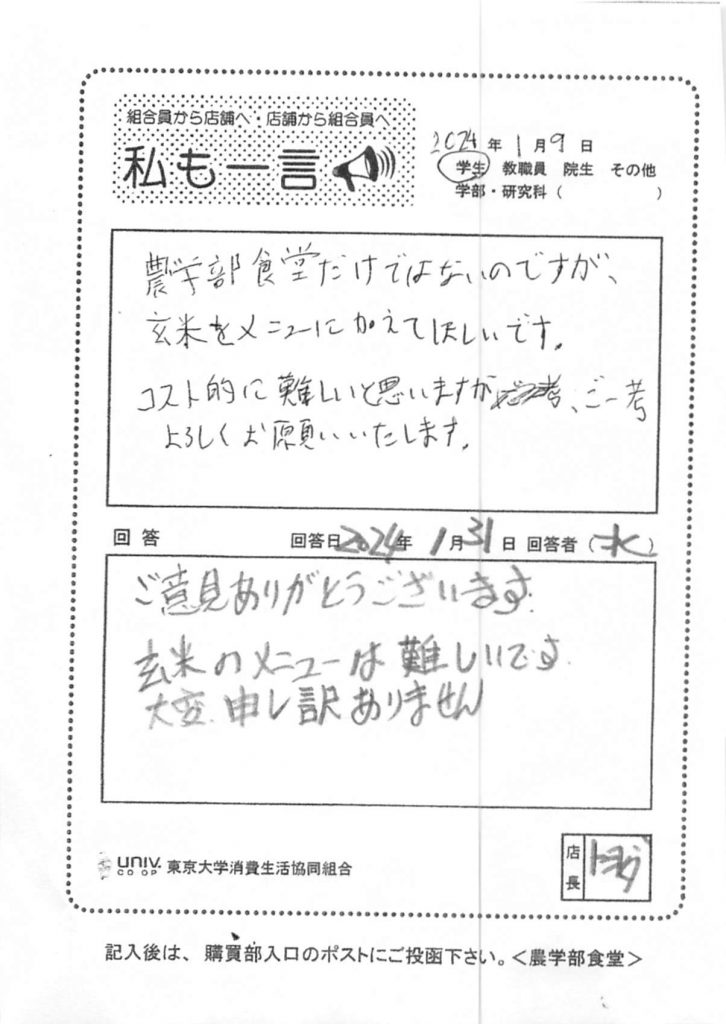 組合員から店舗へ・店舗から組合員へ
私も一言
2024年1月9日
学生 教職員 院生 その他
学部・研究科( )
農学部食堂だけではないのですが、
玄米をメニューに加えてほしいです。
コスト的に難しいと思いますが、ご一考
よろしくお願いいたします。
回答 回答日2024年1月31日 回答者(水)
ご意見ありがとうございます。
玄米のメニューは難しいです。
大変申し訳ありません
UNIV. CO-OP 東京大学消費生活協同組合
店長
記入後は、購買部入口のポストにご投函下さい。<農学部食堂>